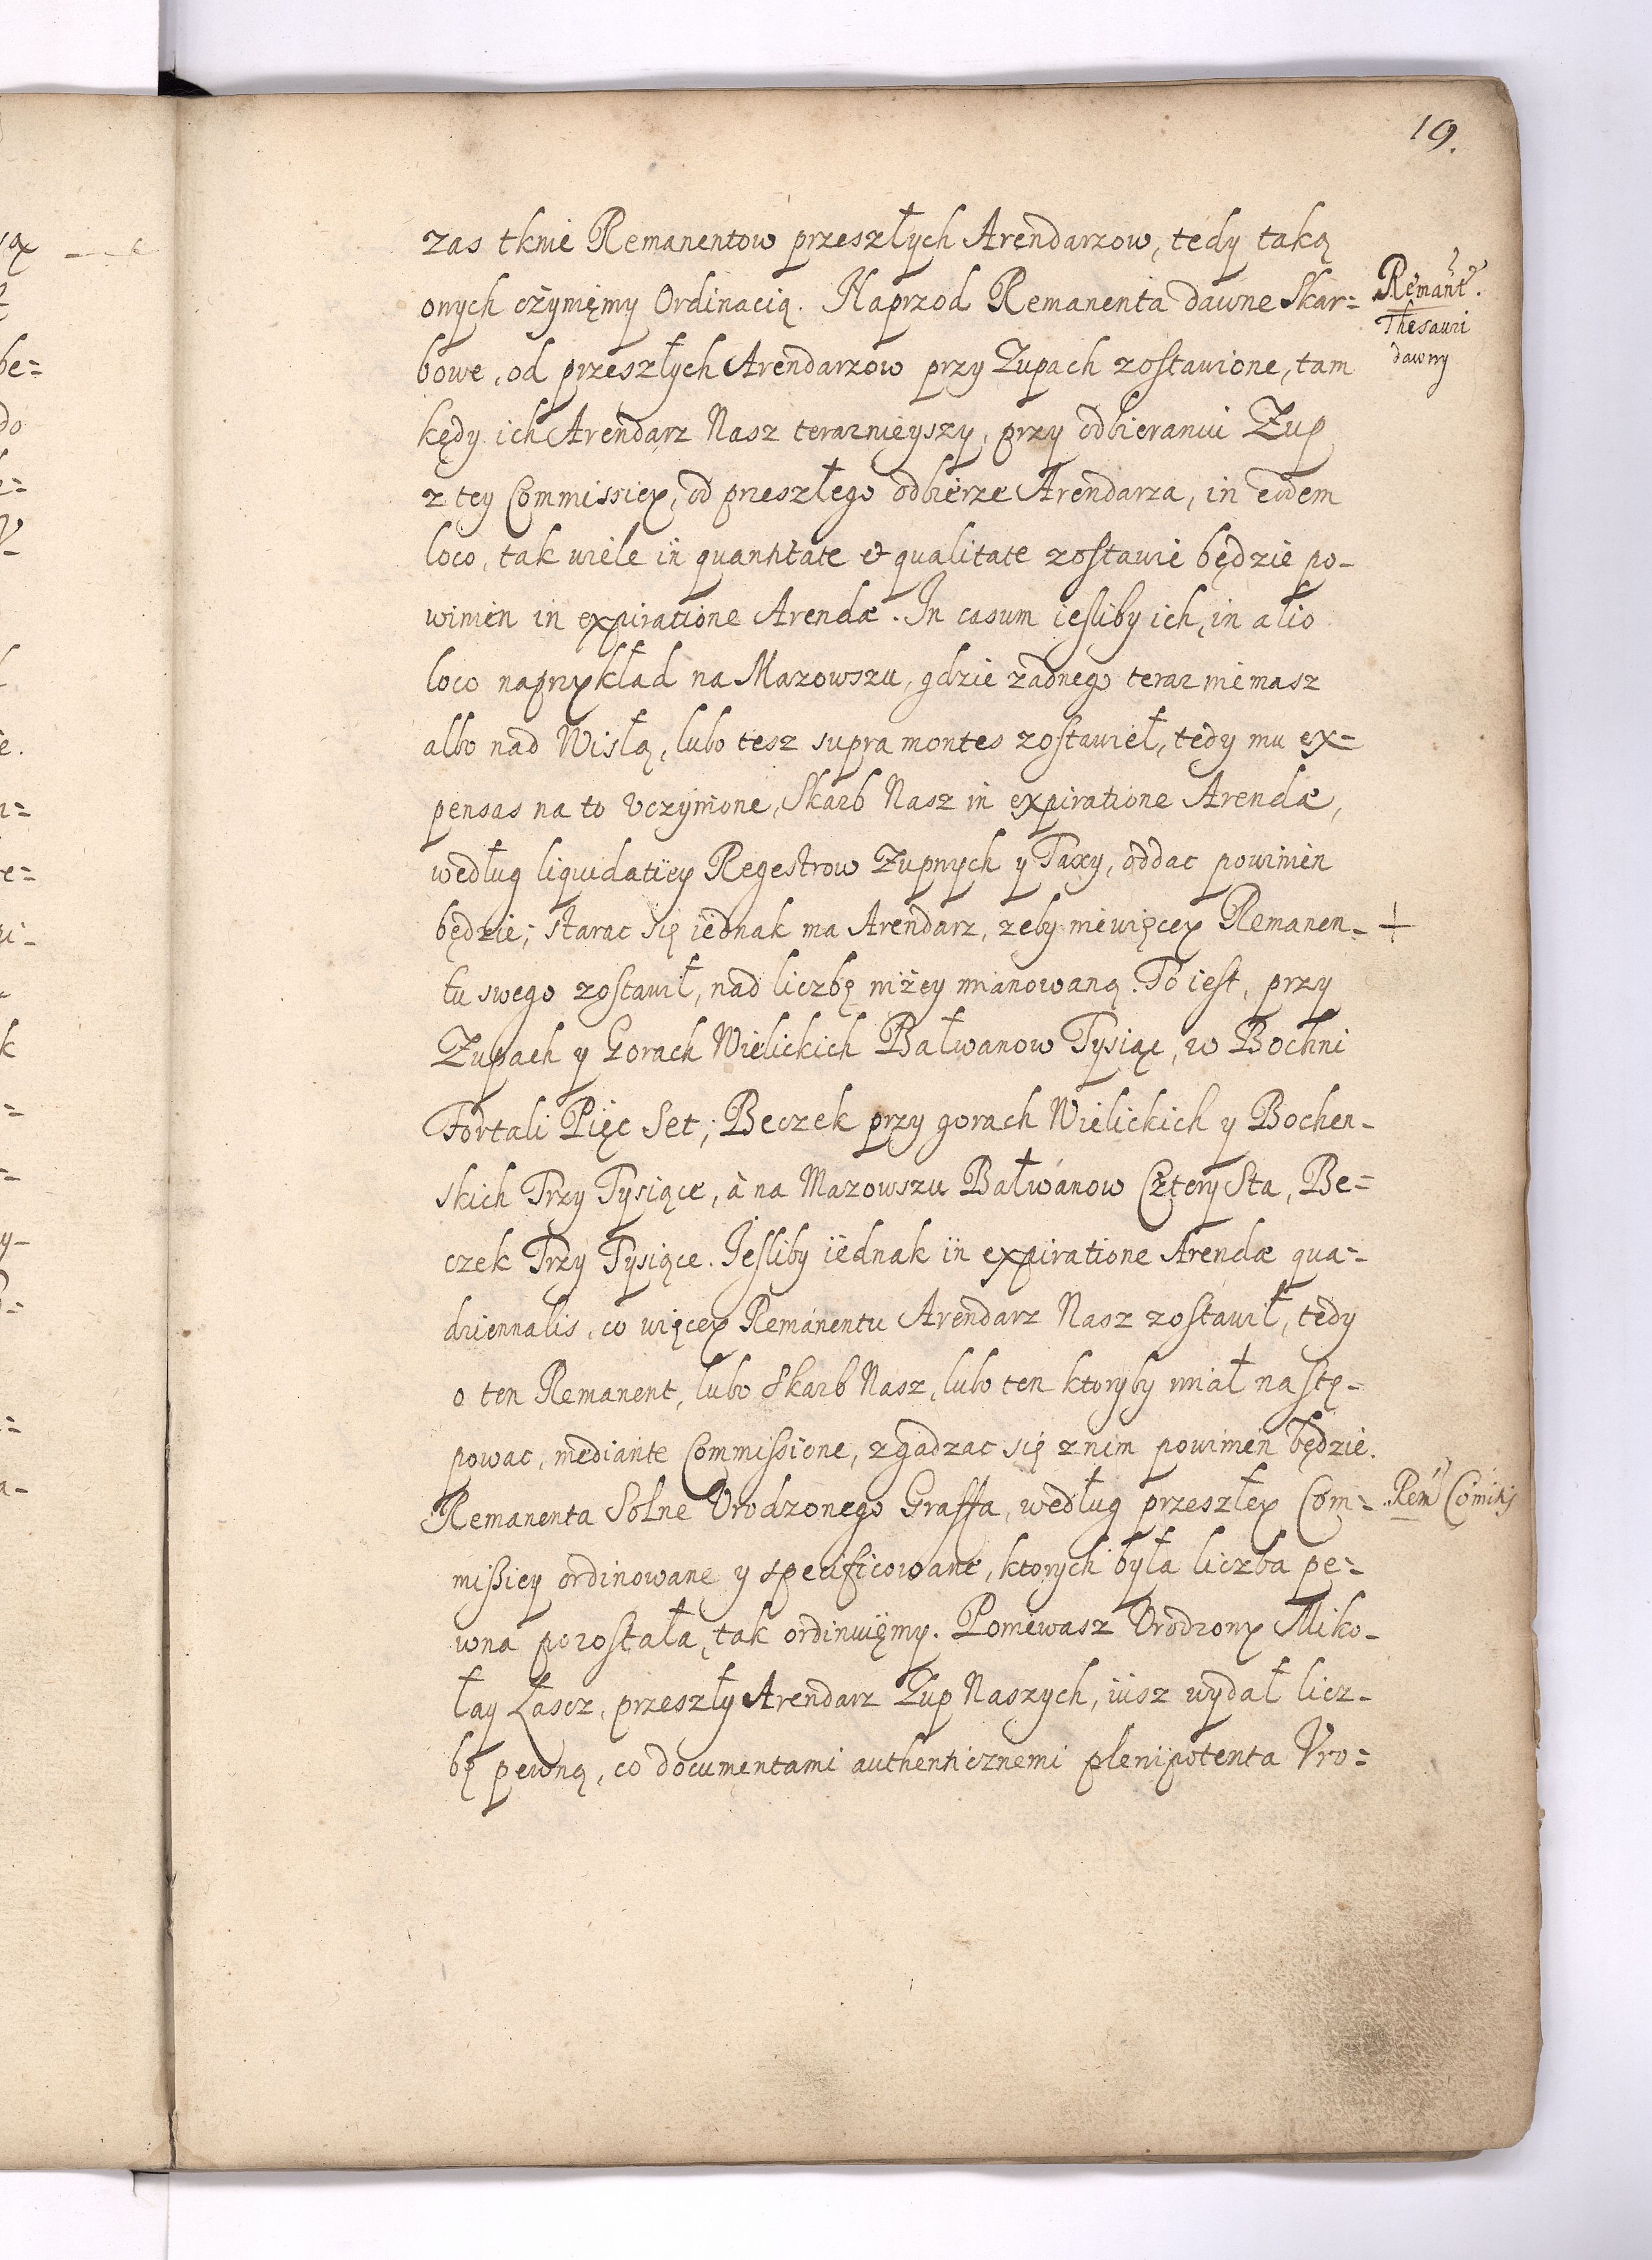 19.
zas tknie Remanentow przeszłych Arendarzow, tedy taką
onych czyniemy Ordinacią. Naprzod Remanenta dawne Skar=
Remant.
Thesauri
dawny
bowe, od przeszłych Arendarzow przy Zupach zostawione, tam
kędy ich Arendarz Nasz teraznieyszy, przy odbieraniu Zup
z tey Commissiey, od przeszłego odbierze Arendarza, in eodem
loco, tak wiele in quantitate & qualitate zostawic będzie po-
winien in expiratione Arendæ. In casum iesliby ich, in alio
loco naprzykład na Mazowszu, gdzie zadnego teraz niemasz
albo nad Wisłą, lubo tesz supra montes zostawieł, tedy mu ex=
pensas na to vczynione, Skarb Nasz in expiratione Arendæ,
według liquidatiey Regestrow Zupnych y Taxy, oddac powinien
będzie; starac się iednak ma Arendarz, zeby niewięcey Remanen- +
tu swego zostawił, nad liczbę niżey mianowaną. To iest, przy
Zupach y Gorach Wielickich Bałwanow Tysiąc, w Bochni
Fortali Pięc Set; Beczek przy gorach Wielickich y Bochen-
skich Trzy Tysiące, à na Mazowszu Bałwanow Czterysta, Be=
czek Trzy Tysiące. Jesliby iednak in expiratione Arendæ qua=
driennalis, co więcey Remanentu Arendarz Nasz zostawił, tedy
o ten Remanent, lubo Skarb Nasz, lubo ten ktoryby miał nastę-
powac, mediante Commissione, zgadzac się z nim powinien będzie.
Remanenta Solne Vrodzonego Graffa, według przeszłey Com=
missiey ordinowane y specificowane, ktorych była liczba pe=
wna pozostała, tak ordinuięmy. Poniewasz Vrodzony Miko-
łay Łascz, przeszły Arendarz Zup Naszych, iusz wydał licz-
bę pewną, co documentami authenticznemi plenipotenta Vro=